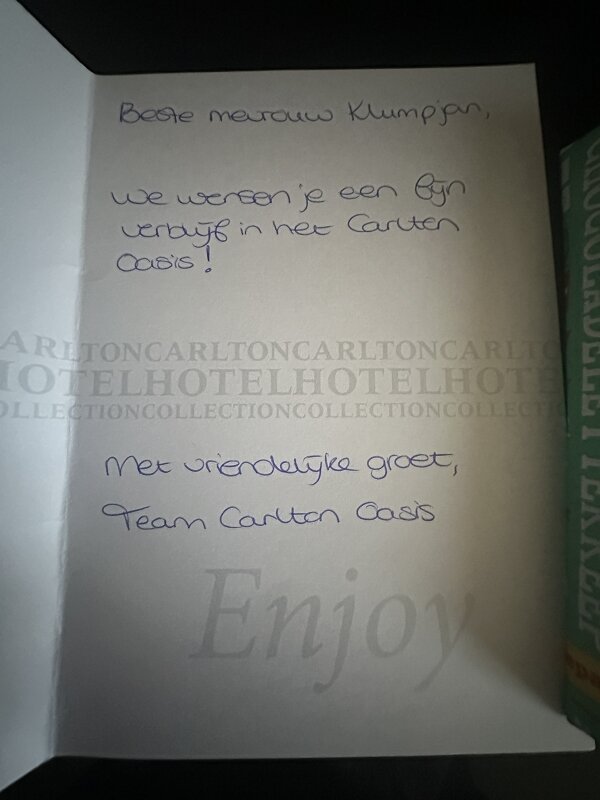 Beste mevrouw Klumpjan,
We wensen je een fijn
verblijf in het Carlton
Oasis!
CARLTONCARLTONCARLTONCARLTO
HOTELHOTELHOTELHOTE
COLLECTIONCOLLECTIONCOLLECTIONCOLLECTIO
Met vriendelijke groet,
Team Carlton Oasis
Enjoy